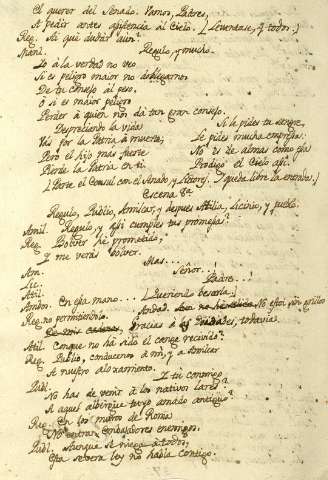 El querer del Senado. Vamos, Padres,
A pedir ante asistencia al Cielo. (Levantase, y todos.)
Reg. Ai que dudar aun?
Manl. Regulo, y mucho.
Yo à la verdad no veo
Si es peligro maior no doblegarnos
De tu consejo al peso,
O si es maior peligro
Perder à quien nos dà tan gran consejo.
Despreciando la vida
Vas por la Patria à muerte,
Pero el hijo mas fuerte
Pierde la Patria en ti.
Si le pides tu sangre,
Le pides mucha
No es de almas como
Prodigo el Cielo asi.
(Parte el Consul con el Senado y Lictores. Queda libre la entrada.)
Escena 8ª
Regulo, Publio, Amilcar, y despues Atilia, Licinio, y pueblo.
Amil. Regulo, y asi cumples tus promesas?
Reg. Bolver hè prometido,
Y me veràs bolver.
Am. Mas...
Lic. Señor...!
Atil. Padre...!
Ambos. En esa mano... (Queriendo besarla.)
Reg. no permitiendolo. Andad. No estoi sin grillos
Gracias à todavia
Atil. Conque no hà sido el cange recivido?
Reg. Publio, conducenos à mi, y a Amilcar
A nuestro alojamiento.
Publ. Y tu conmigo
No has de venir à los nativos lares?
A aquel albergue tuyo amado antiguo?
Reg. En los muros de Roma
No entran Embaxadores enemigos.
Publ. Aunque se niega à todos,
Esta severa ley no habla contigo.